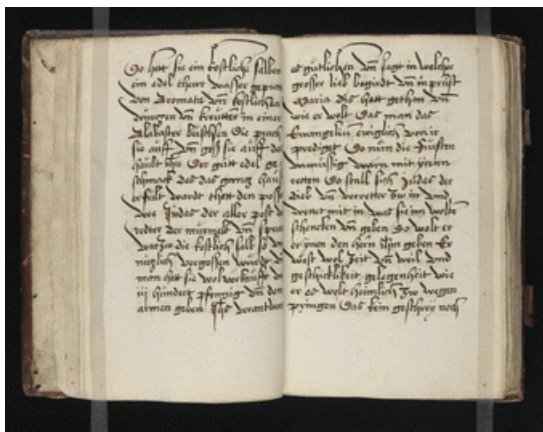 So hett sie ein köstliche salben
ein edel theur wasser
von Aromata vn köstlichen
würtzen vn kreutter in einer
Alabaster büchssen Die puch
sie auff vn goß sie auff das
haubt ihm Der gutt edel ge
schmack des das gantz hauß
erfult wardt thett den poß
Judas der aller post
redter der murmelt vn sprach
warzu die köstlich salb so
nützlich vergossen
man hett sie wol verkaufft
iij hundert pfennig vn den
armen geben Jhs verantwort
es gutlichen vn sagt in welcher
grosser lieb begirdt vn
Maria dis hett gethan vn
wie er wolt Das man das
Ewangelium ewiglich von ir
prediget So nun die Fursten
warn mit yrem
retten So stalt sich Judas der
dieb vn verretter zu in vnd
rettet mit in was sie im wolten
schencken vn geben So wolt er
er ynen den hern Jhm geben Er
west wol zeit vn weil vnd
geschicklikeit gelegenheit wie
er es wolt heimlich zu wegen
pringen Das kein geschrey noch